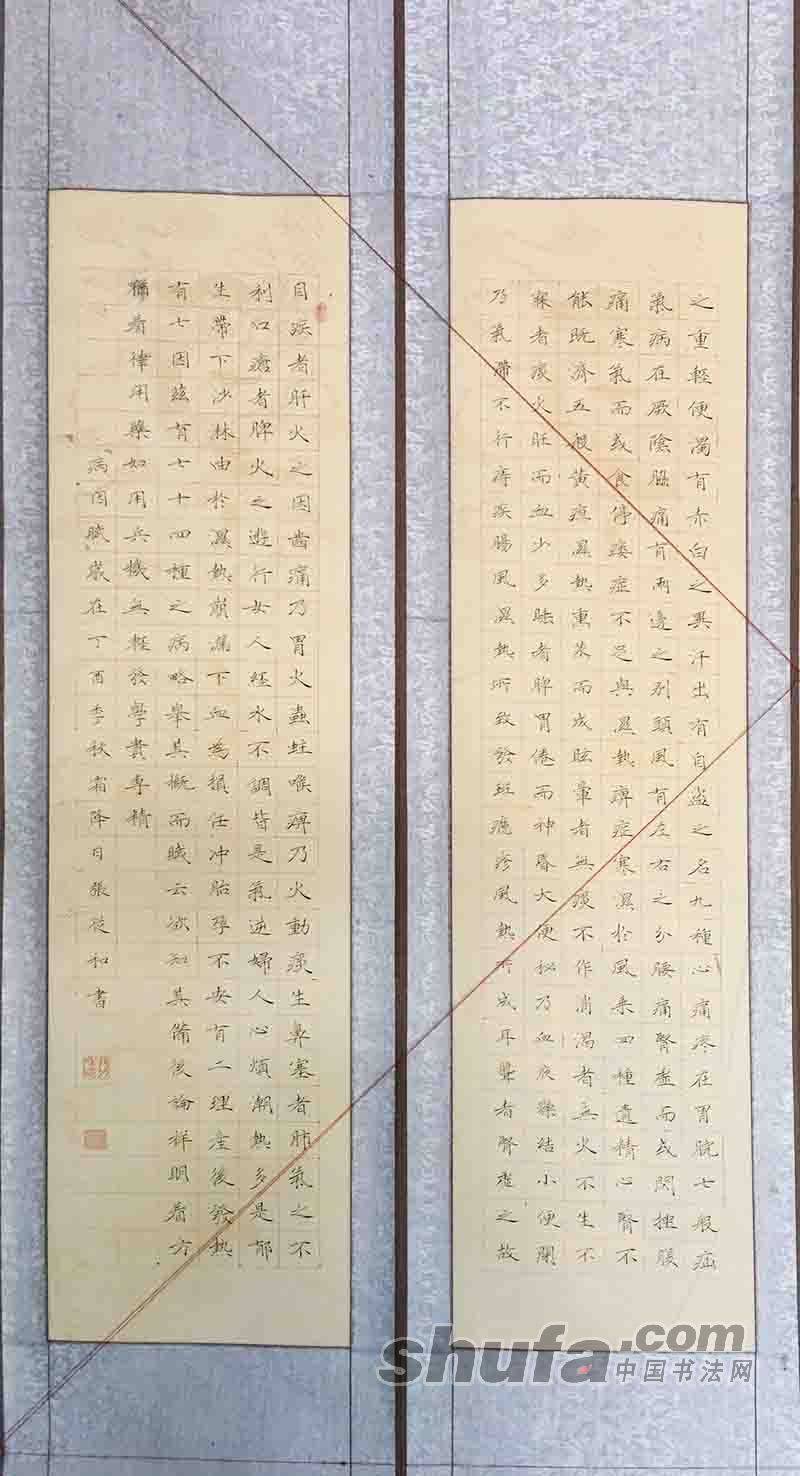 之重輕便濁有赤白之異汗出有自盜之名九種心痛疼在胃脘七般疝
氣病在厥陰脇痛有兩邊之別頭風有左右之分腰痛腎虛而或閃挫腹
痛寒氣而或食停痿症不足與濕熱痹症寒濕於風來四種遺精心腎不
能既濟五般黃疸濕熱熏蒸而成眩暈者無痰不作消渴者無火不生不
寐者痰火旺而血少多眠者脾胃倦而神昏大便秘乃血液燥結小便閉
乃氣滯不行痔疾腸風濕熱所致發斑癮疹風熱所成耳聾者腎虛之故
目疾者肝火之因齒痛乃胃火蟲蛀喉痹乃火動痰生鼻塞者肺氣之不
利口瘡者脾火之遊行女人經水不調皆是氣逆婦人心煩潮熱多是郁
生帶下沙淋由於濕熱崩漏下血為損任沖胎孕不安有二理產後發熱
有七因茲有七十四種之病略舉其概而賦云欲知其備後論祥明看方
猶看律用藥如用兵機無輕發學貴專精
病因賦歲在丁酉季秋霜降日張從和書
shufa.com
中国书法网